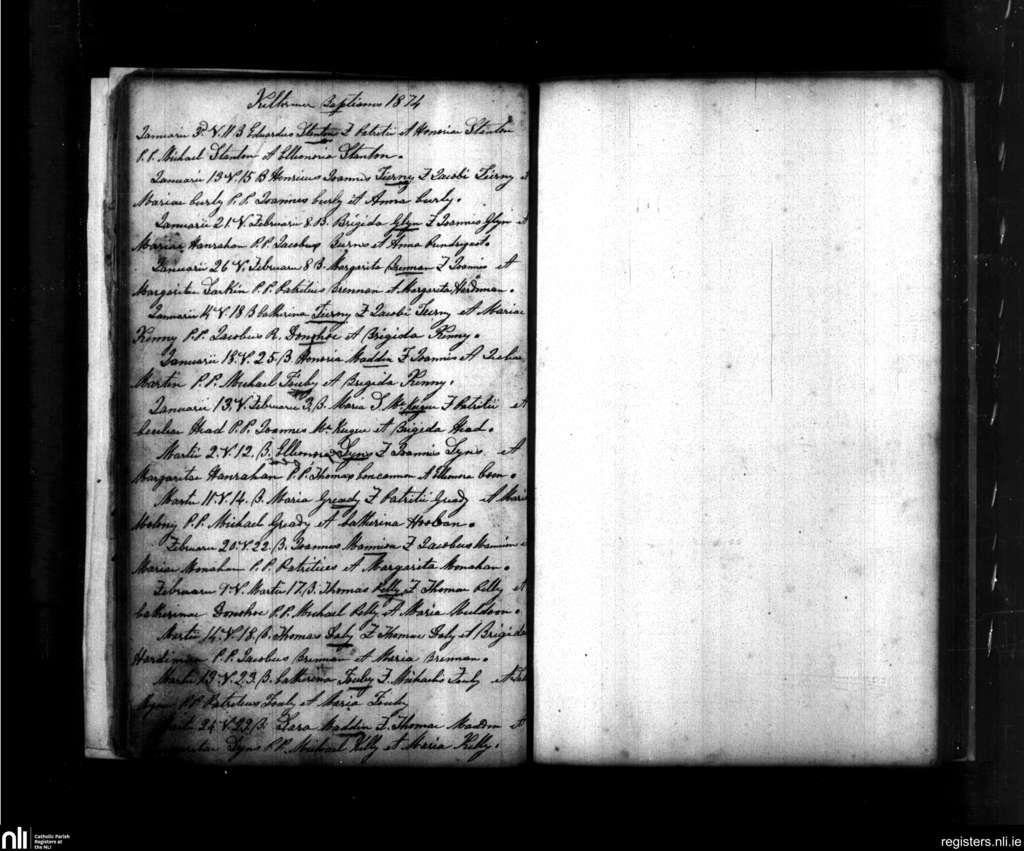 Baptismus 1874
Januarii 3. V. 11 B Eduardus Stanton F Patritii et Honoria Stanton
P.P. Michael Stanton et Ellionoria Stanton.
Januarii 13. V. 15 B Henricus Joannis Tierny F Jacobi Tierny et
Mariae Curly P.P. Joannes Curly et Anna Curly.
Januarii 21. V. Februarii 8 B. Brigida Glyn F Joannis Glyn et
Mariae Hanrahan P.P. Jacobus Burns et Anna
Januarii 26 V. Februarii 8 B. Margarita Brennan F Joannis et
Margaritae Larkin P.P. Patritius Brennan et Margarita
Januarii 14. V. 18 B Catherina Tierny F Jacobi Tierny et Mariae
Kenny P.P. Jacobus R. Donohoe et Brigida Kenny.
Januarii 18. V. 25. B. Honoria Madden F Joannis et
Martin P.P. Michael et Brigida Kenny.
Januarii 13. V. Februarii 3. B. Maria S. Mc Keigue F Patritii et
Head P.P. Joannes Mc Keigue et Brigida Head.
Martii 2. V. 12. B. Ellionora Lyns F Joannis Lyns et
Margaritae Hanrahan P.P. Thomas Concannon et Elleonora
Martii 11. V. 14. B. Maria Gready F Patritii Gready et Maria
Molony P.P. Michael Gready et Catherina
Februarii 20. V. 22. B. Joannes Mannion F Jacobus Mannion et
Mariae Monahan P.P. Patritius et Margarita Monahan.
Februarii 9. V. Martii 17. B. Thomas Kelly F Thomae Kelly et
Catherinae Donohoe P.P. Michael Kelly et Maria Muldoon.
Martii 14. V. 18. B. Thomas Daly F Thomae Daly et Brigida
Hardiman P.P. Jacobus Brennan et Maria Brennan.
Martii 13. V. 23. B. Catherina F. Michaelis et
P.P. Patritius et Maria
24. V. 29. B. Sara Madden F. Thomae Madden et
Lyns P.P. Michael Kelly et Maria Kelly.
nli
Catholic Parish
Registers at
the NLI
registers.nli.ie